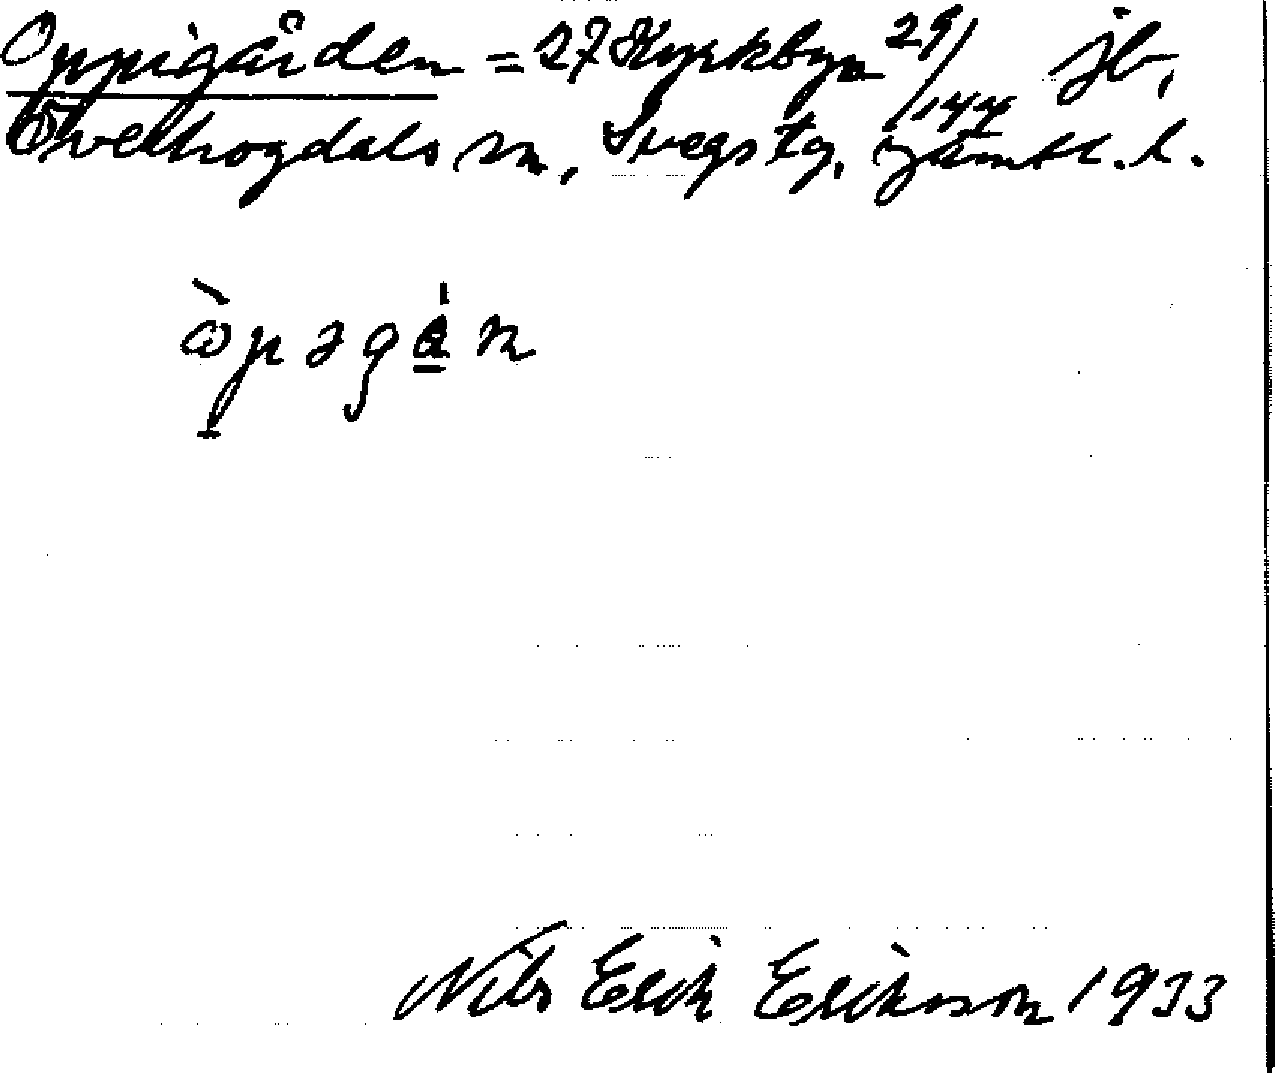 Oppigården = 27 Kyrkbyn 29/144 jb,
Överhogdals sn, Svegs tg, Jämtl. l.
ὼpəga̱n
Nils Erik Erikson 1933